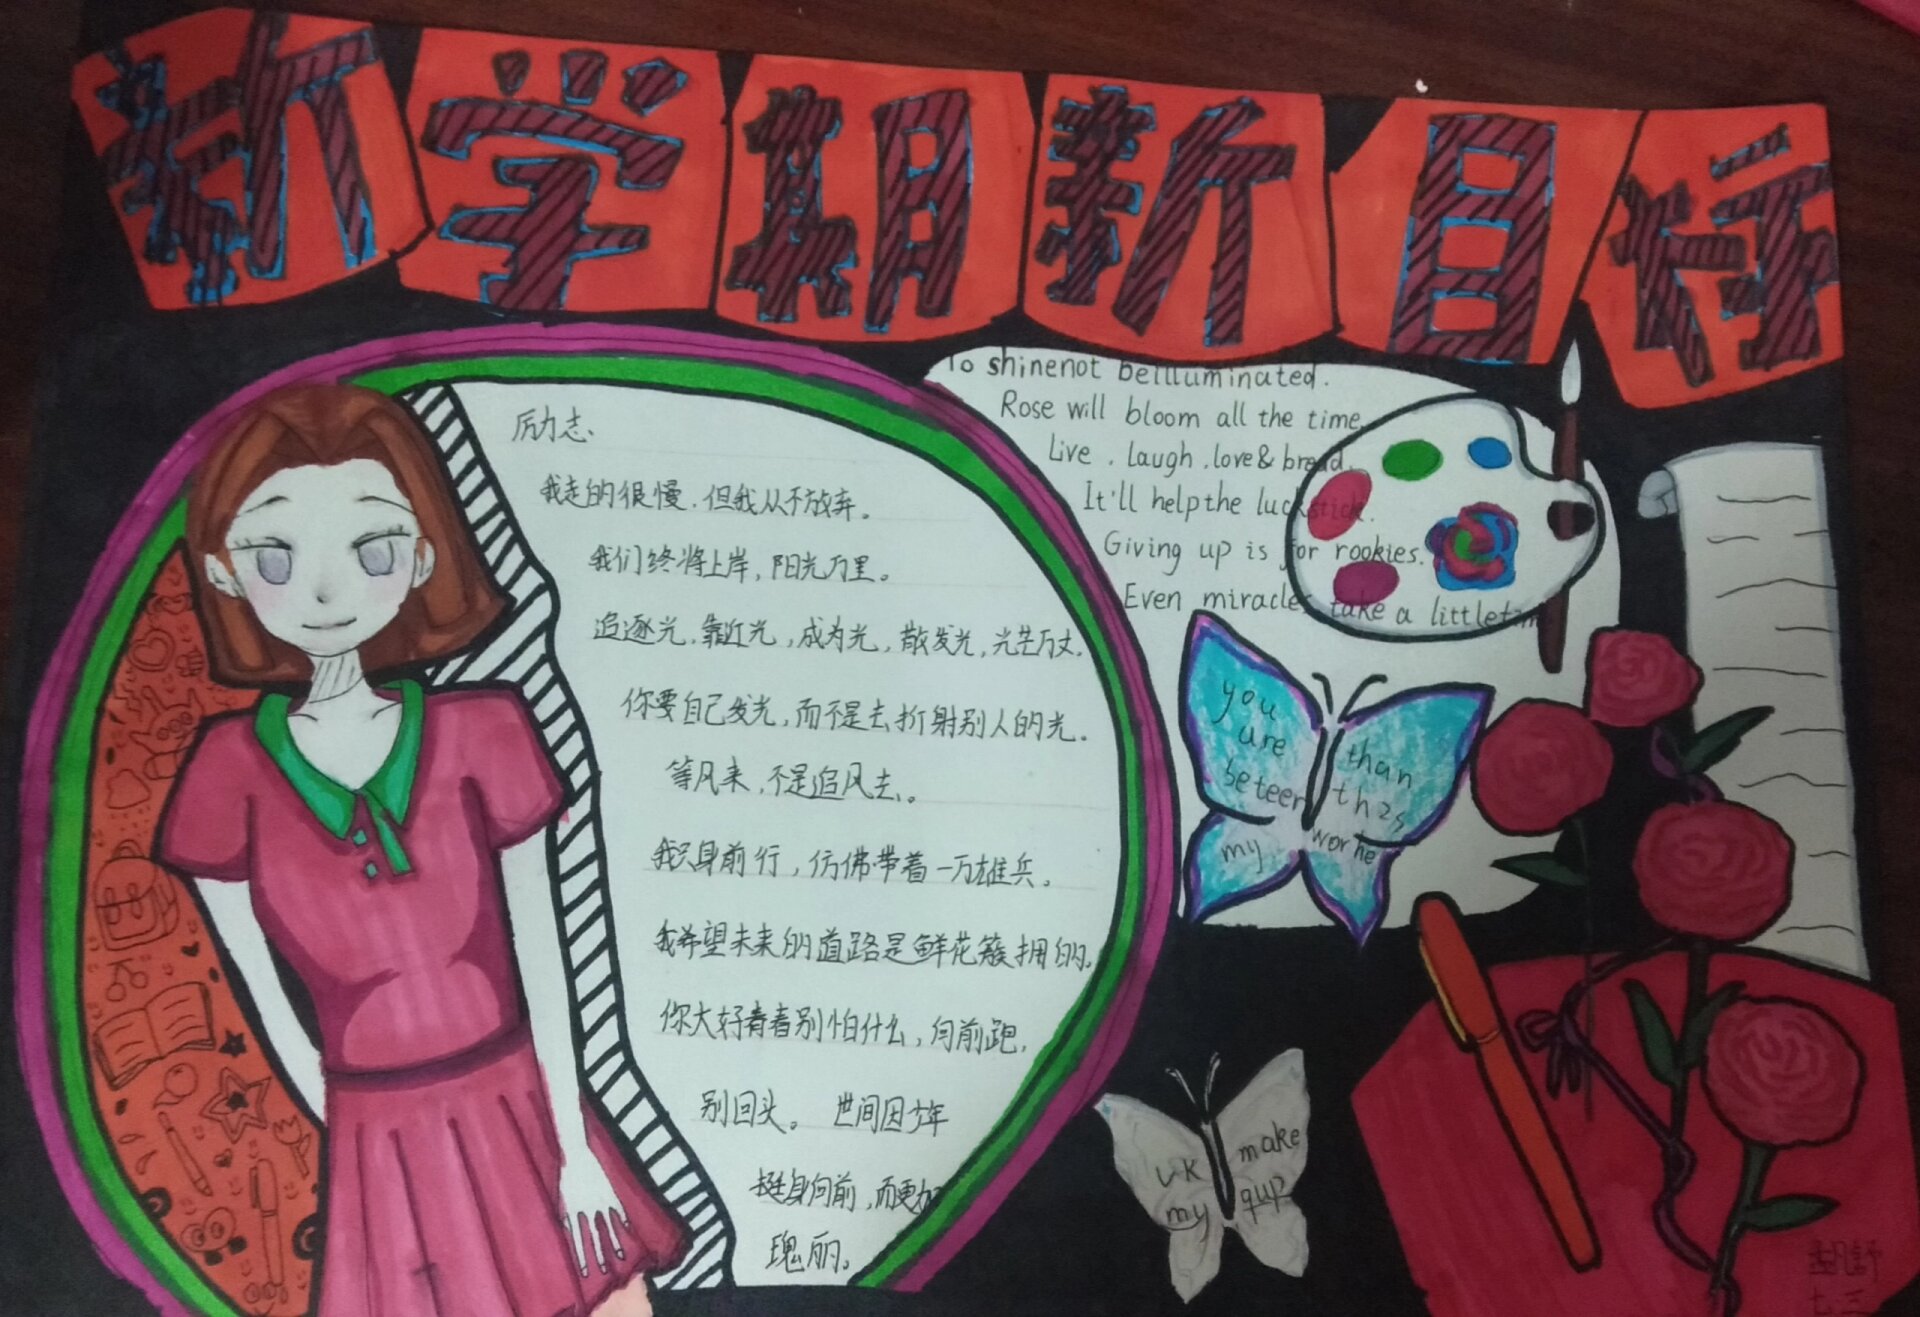 新学期新目标
厉力志
我走的很慢，但我从不放弃。
我们终将上岸，阳光万里。
追逐光，靠近光，成为光，散发光，光芒万丈．
你要自己发光，而不是去折射别人的光。
等风来，不是追风去。
我只身前行，仿佛带着一万雄兵。
我希望未来的道路是鲜花簇拥的。
你大好青春别怕什么，向前跑，
别回头。 世间因少年
挺身向前，而更加
瑰丽。
To shinenot beilluminated.
Rose will bloom all the time.
Live , laugh .love& bread.
It'll helpthe luckstick.
Giving up is for rookies.
Even miracles take a little
you
are
beteen
my
than
th2s
worhe
my
make
qup
七.三